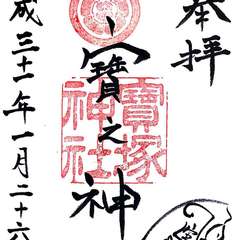 奉拝
寶之神
寶塚
神社
成三十一年一月二十六